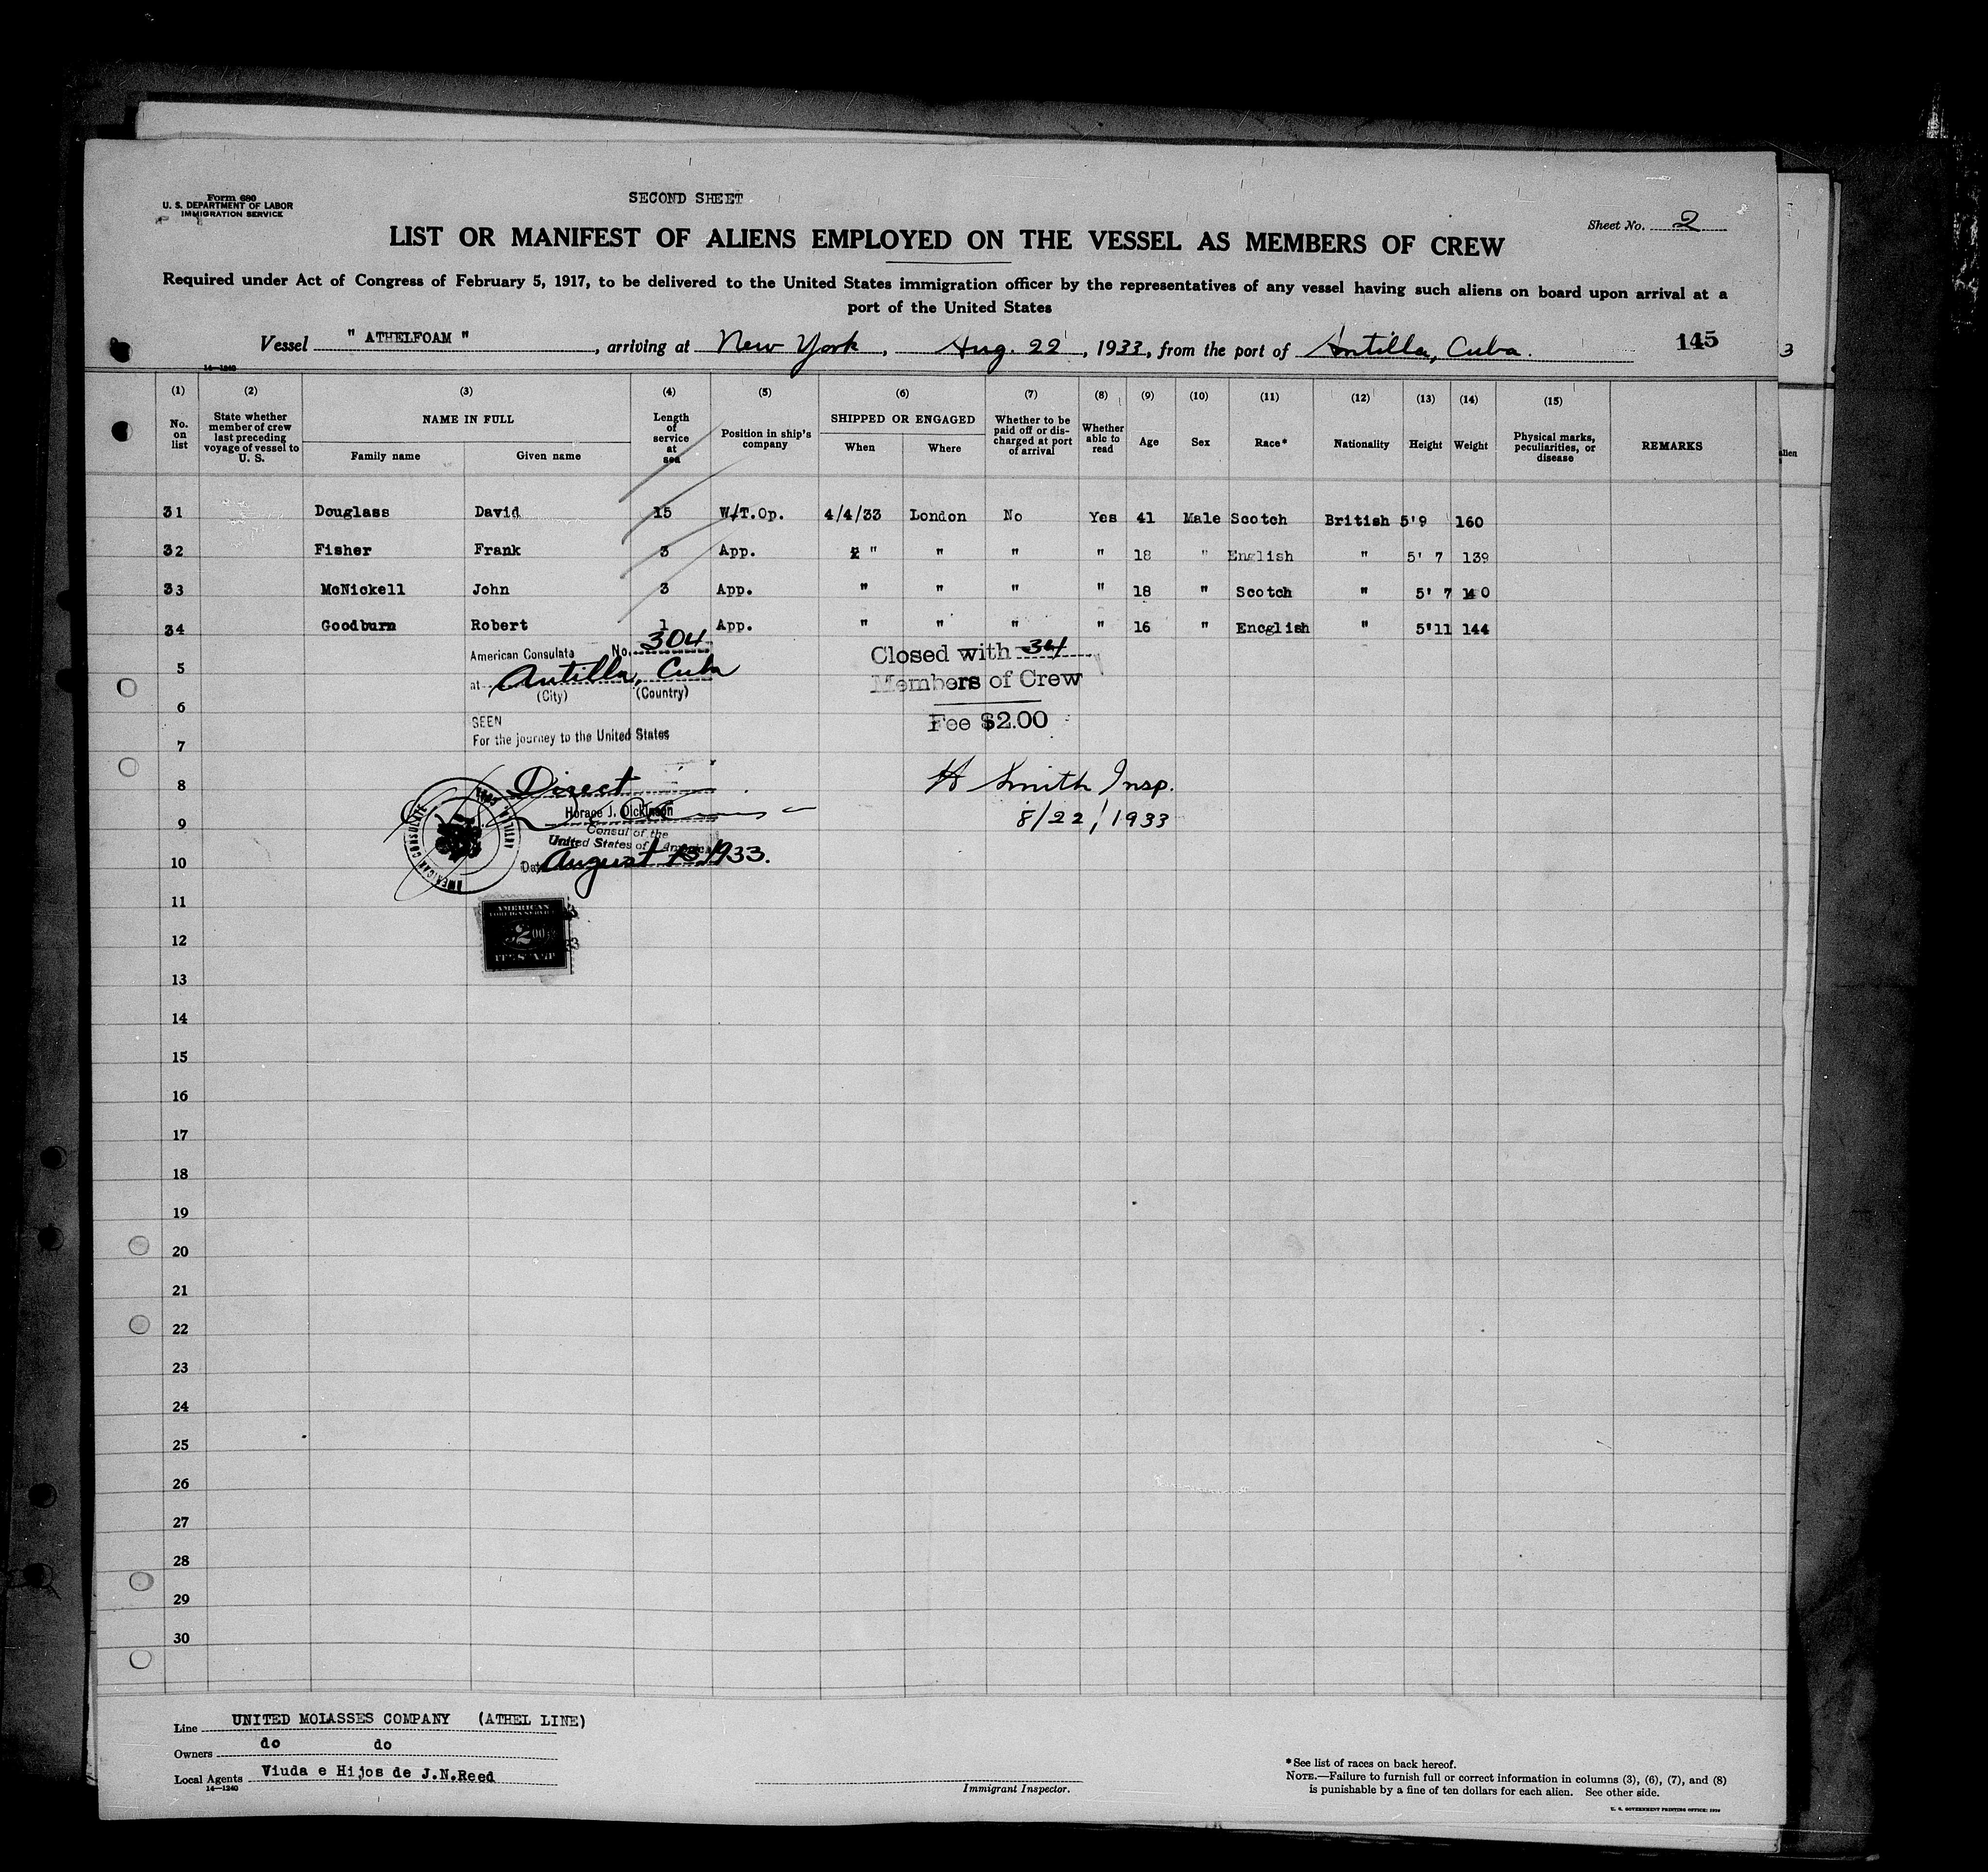 Form 680
U. S. DEPARTMENT OF LABOR
IMMIGRATION SERVICE
SECOND SHEET
Sheet No. 2
LIST OR MANIFEST OF ALIENS EMPLOYED ON THE VESSEL AS MEMBERS OF CREW
Required under Act of Congress of February 5, 1917, to be delivered to the United States immigration officer by the representatives of any vessel having such aliens on board upon arrival at a
port of the United States
Vessel " ATHELFOAM ", arriving at New York, Aug. 22, 1933, from the port of Antilla, Cuba.
145
3
14—1240
(1) (2) (3) (4) (5) (6) (7) (8) (9) (10) (11) (12) (13) (14) (15)
No. on list
State whether member of crew last preceding voyage of vessel to U. S.
NAME IN FULL
Family name Given name
Length of service at sea
Position in ship's company
SHIPPED OR ENGAGED
When Where
Whether to be paid off or discharged at port of arrival
Whether able to read
Age Sex Race* Nationality Height Weight
Physical marks, peculiarities, or disease
REMARKS
31 Douglass David 15 W/T.Op. 4/4/33 London No Yes 41 Male Scotch British 5'9 160
32 Fisher Frank 3 App. " " " " 18 " English " 5' 7 139
33 McNickell John 3 App. " " " " 18 " Scotch " 5' 7 140
34 Goodburn Robert 1 App. " " " " 16 " Encglish " 5'11 144
American Consulate No. 304
at Antilla, Cuba
(City) (Country)
SEEN
For the journey to the United States
Direct
Horace J. Dickinson
Consul of the
United States of America
Date August 15, 1933.
AMERICAN CONSULATE
AMERICAN
FOREIGN SERVICE
$2.00
FEE STAMP
Closed with 34
Members of Crew
Fee $2.00
H Smith Insp.
8/22/1933
5
6
7
8
9
10
11
12
13
14
15
16
17
18
19
20
21
22
23
24
25
26
27
28
29
30
Line UNITED MOLASSES COMPANY (ATHEL LINE)
Owners do do
Local Agents Viuda e Hijos de J.N.Reed
14—1240
Immigrant Inspector.
*See list of races on back hereof.
NOTE.—Failure to furnish full or correct information in columns (3), (6), (7), and (8)
is punishable by a fine of ten dollars for each alien. See other side.